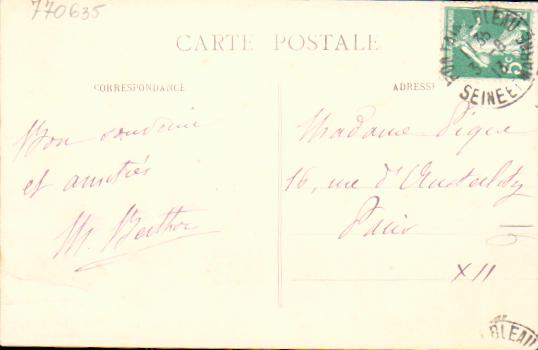 770635
CARTE POSTALE
CORRESPONDANCE
ADRESSE
Bon souvenir
et amitiés
M. Berthon
Madame Pique
16, rue d'Austerlitz
Paris
XII
FONTAINEBLEAU
SEINE ET MARNE
5c
BLEAU